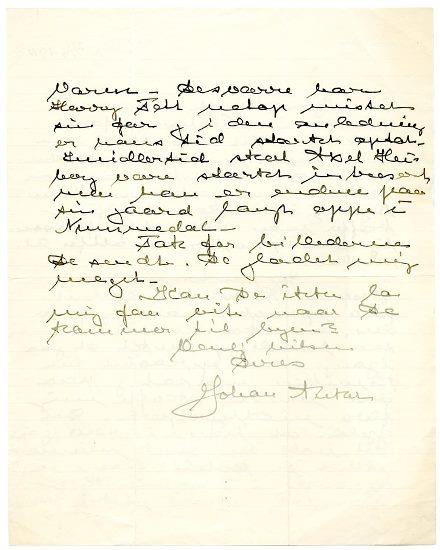 varen – Desværre har
Harry Fett netop mistet
sin far, i den anledning
er hans tid stærkt optat.
Imidlertid skal Axel Hei-
berg være stærkt interesert
men han er endnu paa
sin gaard langt oppe i
Nummedal –
Tak for billederne
De sendte. De glædet mig
meget –
Kan De ikke la
mig faa vite naar De
kommer til byen?
Venlig hilsen
Deres
Johan